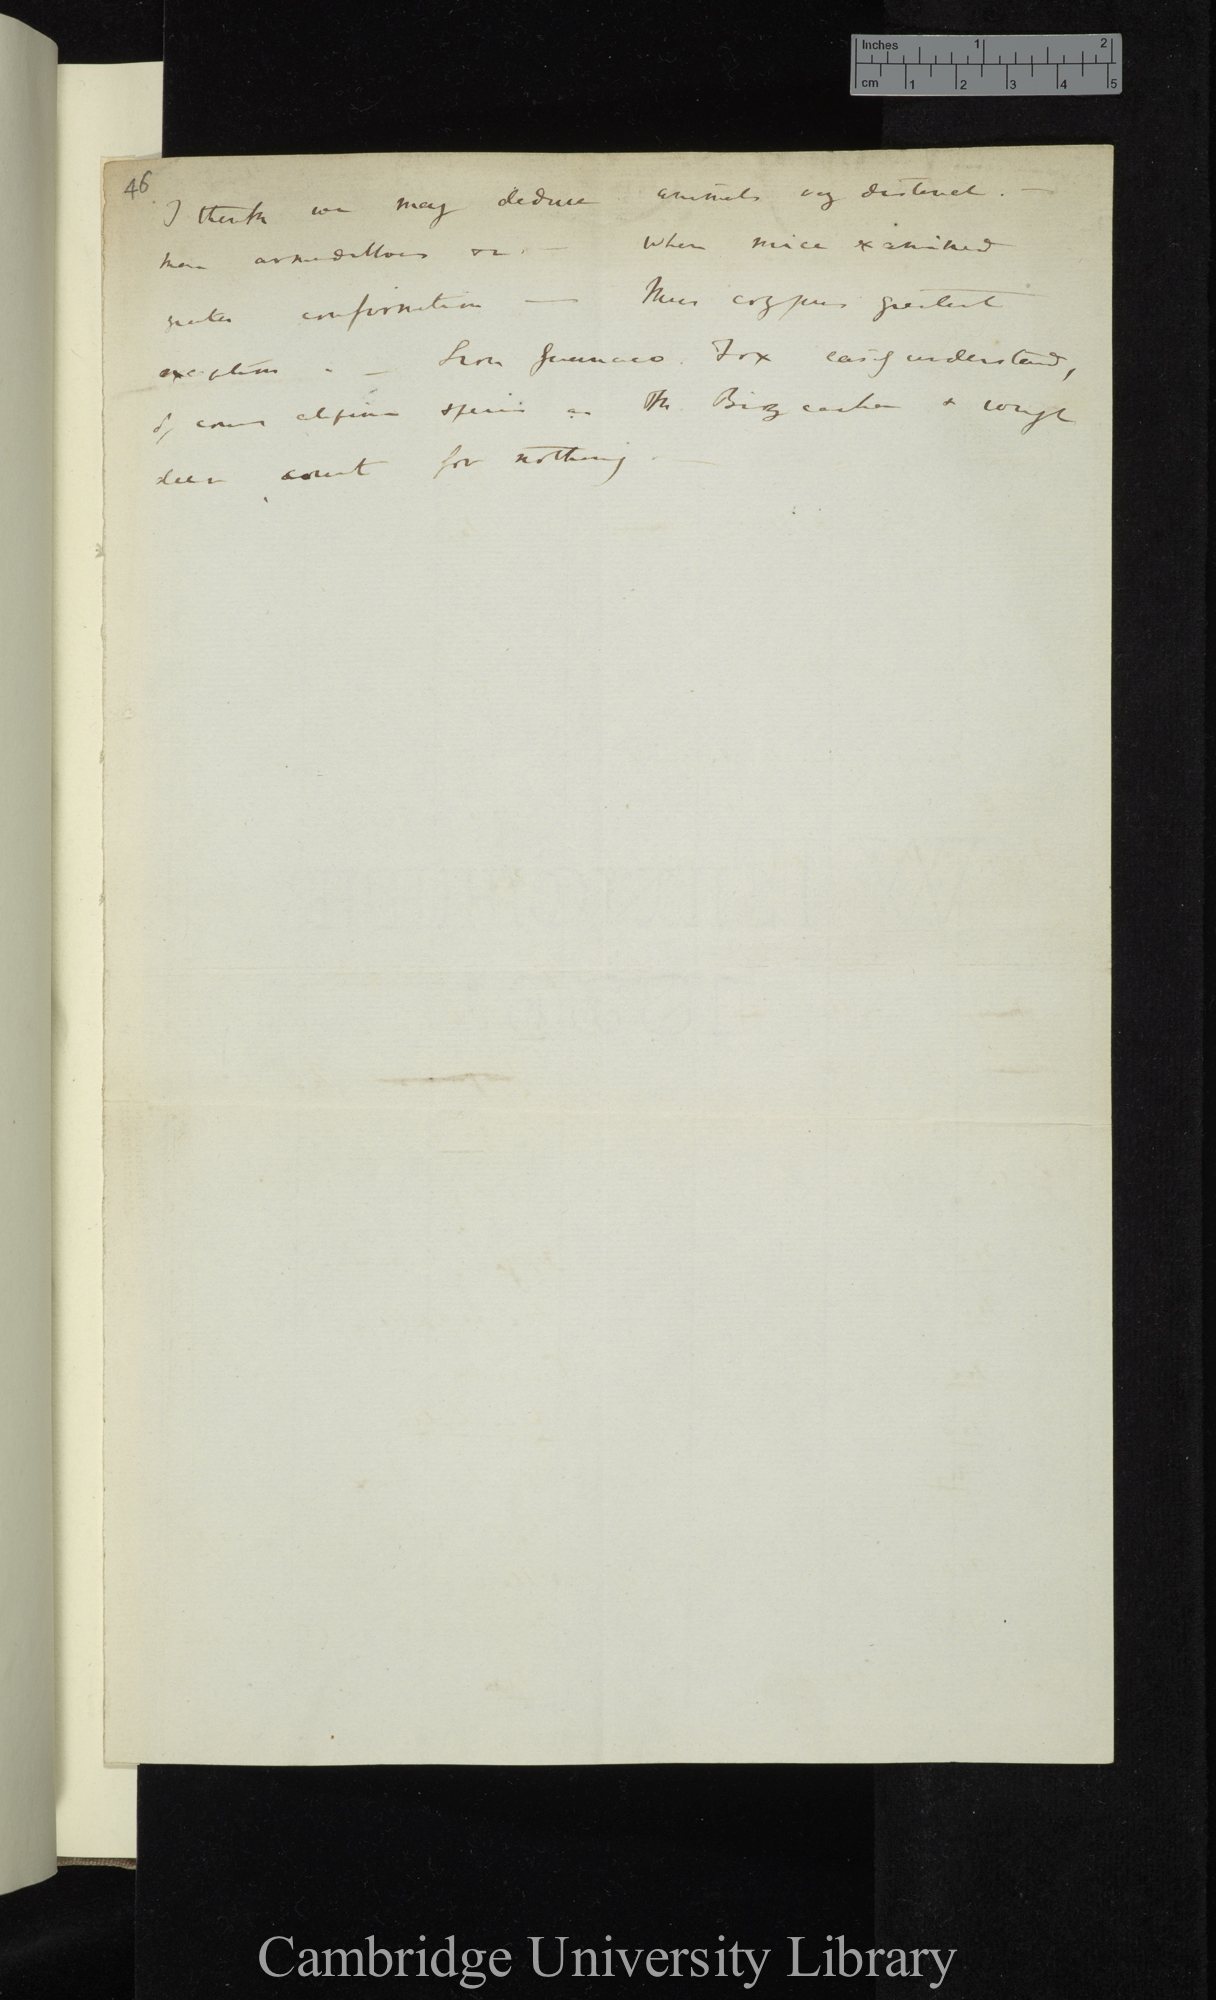 Inches 1 2
cm 1 2 3 4 5
46
I think we may deduce animals very distinct. —
than armadilloes &c. — When mice examined
greater confirmation — Mus coypus greatest
exception. — Lion Guanaco Fox easily understand,
of course alpine species as the Bizcacha &
deer count for nothing —
Cambridge University Library